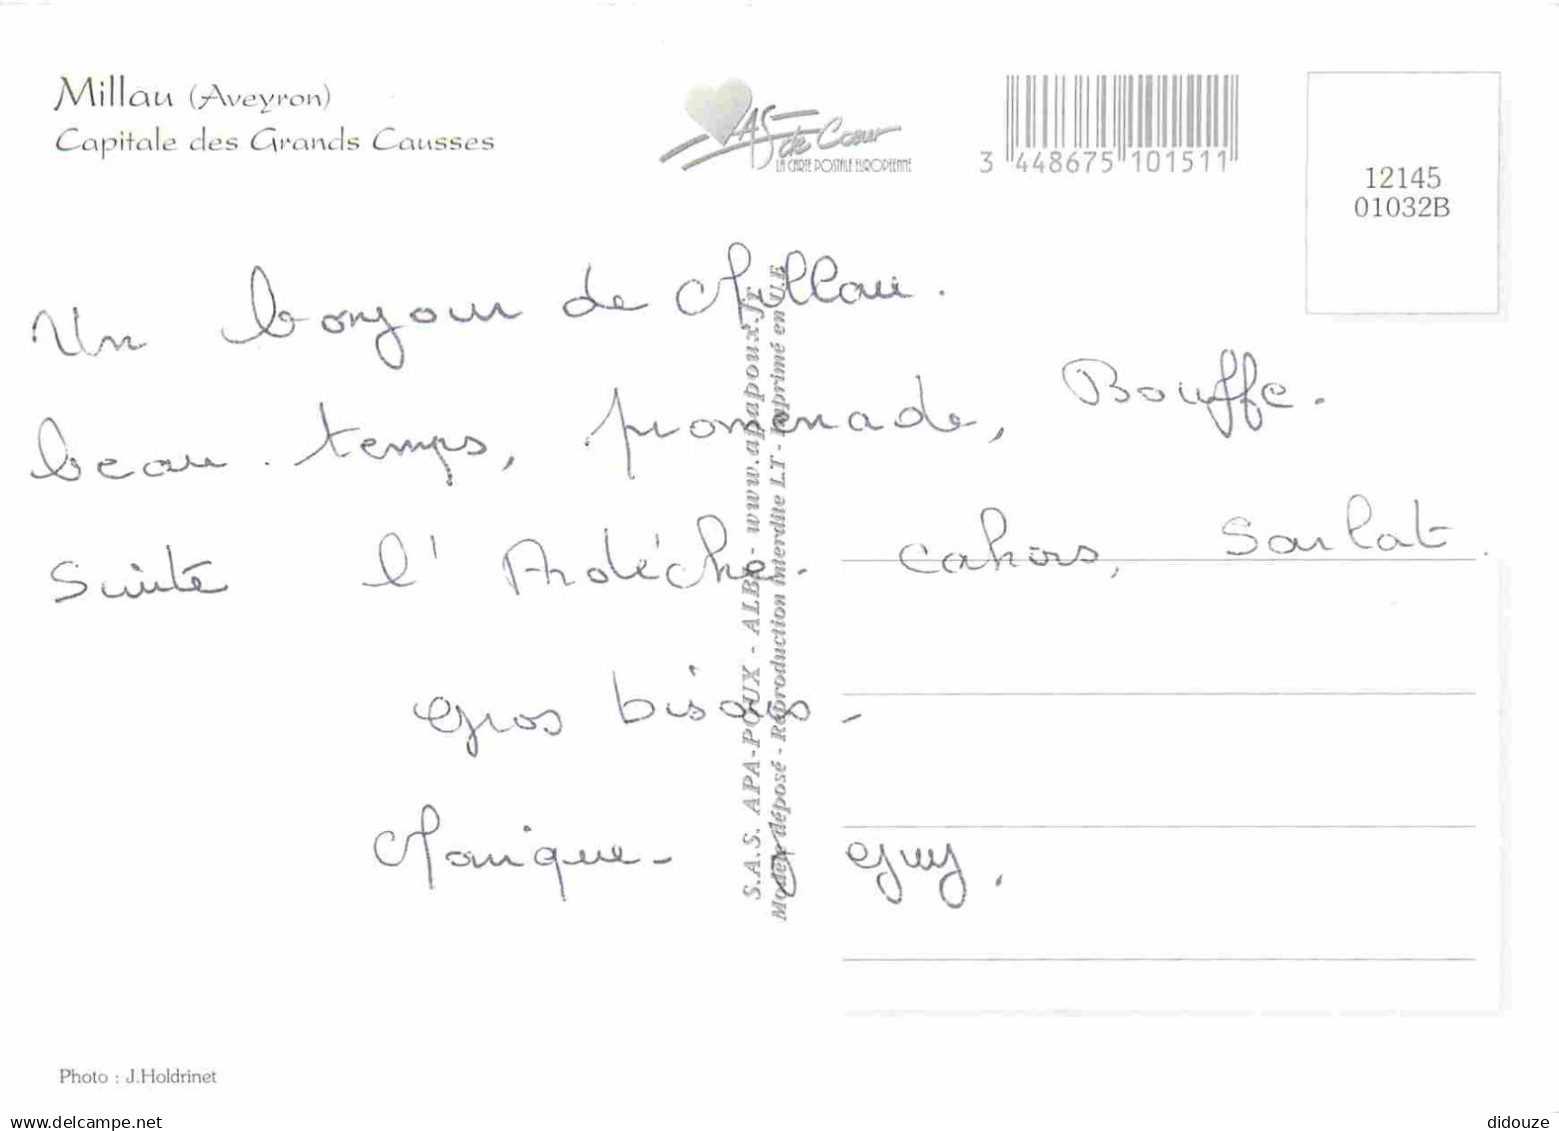 Millau (Aveyron)
Capitale des Grands Causses
AS de Cœur
LA CARTE POSTALE EUROPÉENNE
3 448675 101511
12145
01032B
Un bonjour de Millau.
beau temps, promenade, Bouffe.
Suite l'Ardèche. Cahors, Sarlat.
Gros bisous -
Monique - Guy.
S.A.S. APA-POUX - ALBI - www.apapoux.fr
Modèle déposé - Reproduction interdite LT - Imprimé en U.E
Photo : J.Holdrinet
www.delcampe.net
didouze